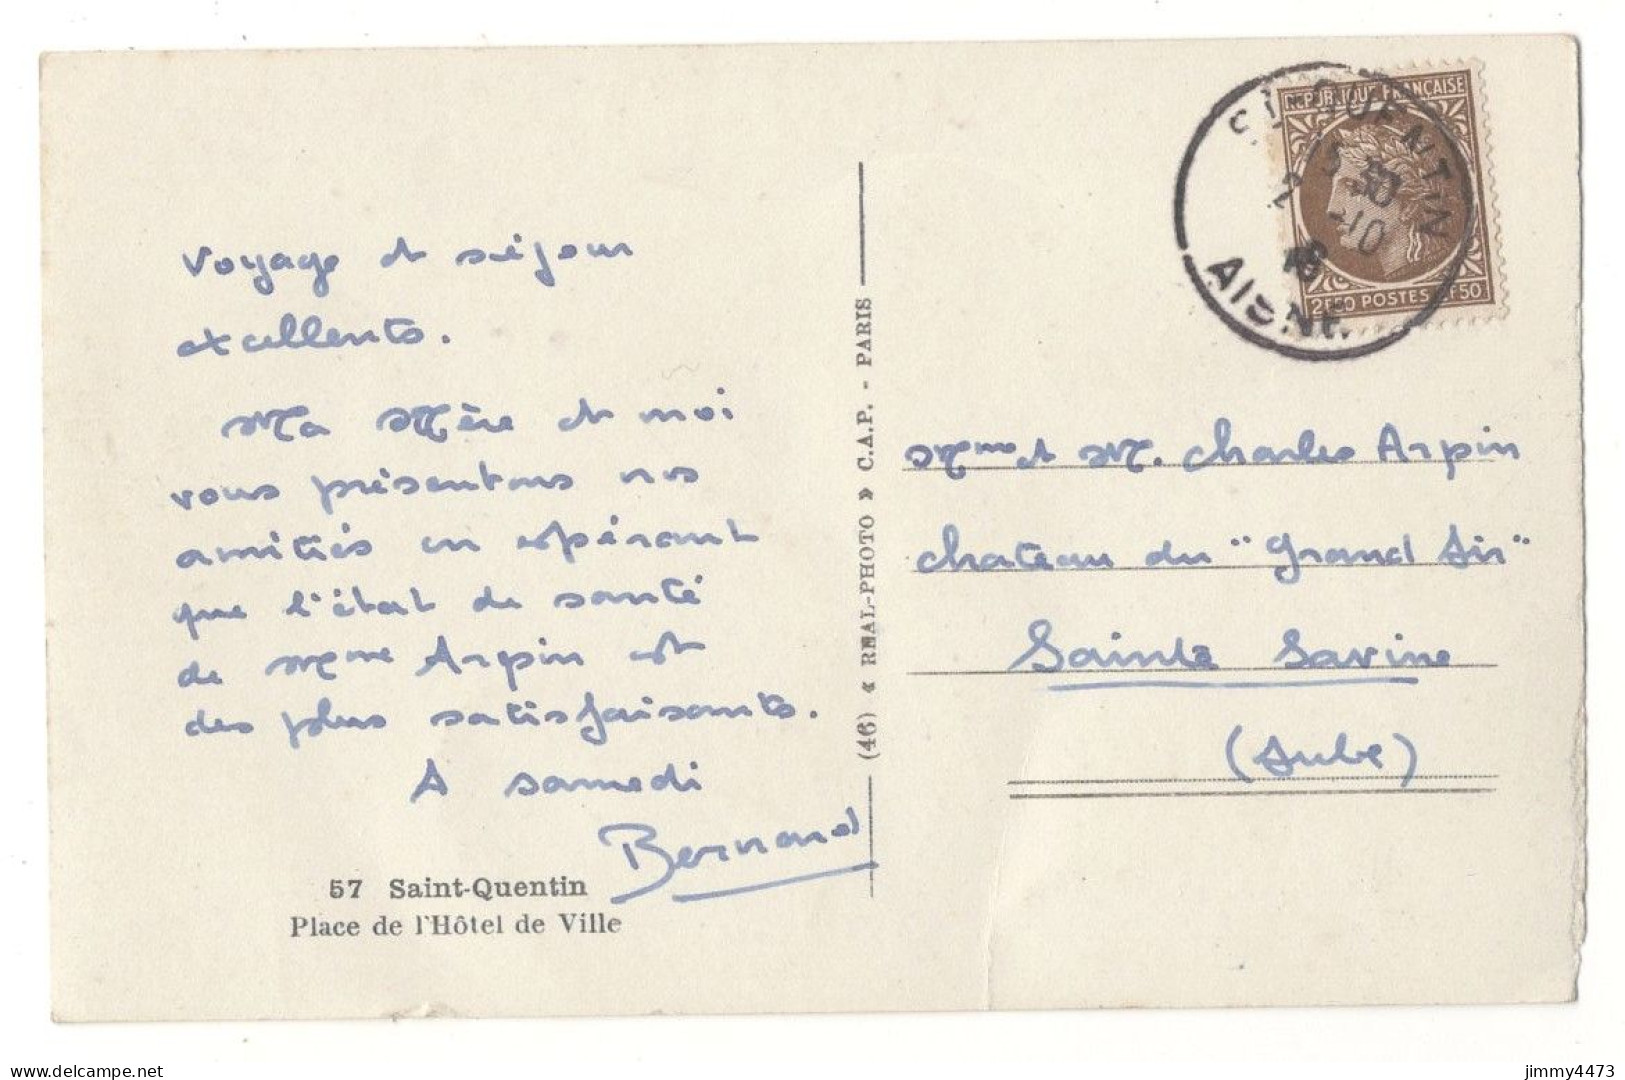 Voyage et séjour
excellents.
Ma Mère et moi
vous présentons nos
amitiés en espérant
que l'état de santé
de Mme Arpin est
des plus satisfaisants.
A samedi
Bernard
57 Saint-Quentin
Place de l'Hôtel de Ville
(46) « REAL-PHOTO » C.A.P. - PARIS
REPUBLIQUE FRANÇAISE
2F50 POSTES 2F50
ST QUENTIN
-10
AISNE
Mme et M. Charles Arpin
chateau du "Grand Air"
Sainte Savine
(Aube)
jimmy4473